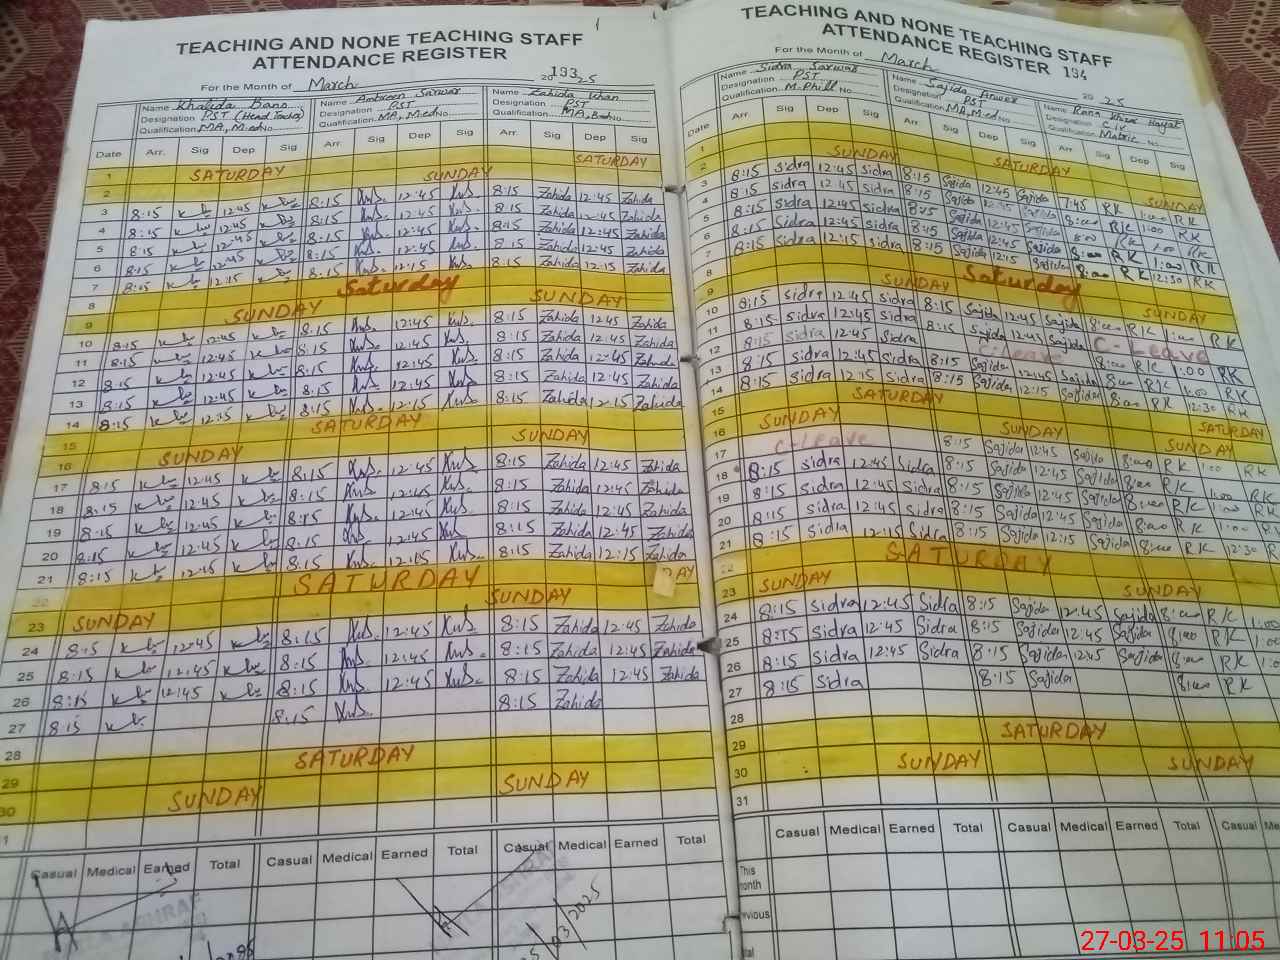 TEACHING AND NONE TEACHING STAFF
ATTENDANCE REGISTER
193
For the Month of March 2025
Name Khalida Bano Name Ambreen Sarwar Name Zahida Khan
Designation PST (Head Teacher) Designation PST Designation PST
Qualification MA, M.ed No Qualification MA, M.ed No Qualification MA, B.ed No
Date Arr. Sig Dep Sig Arr Sig Dep Sig Arr. Sig Dep Sig
1 SATURDAY SATURDAY
2 SUNDAY
3 8:15 12:45 8:15 12:45 8:15 Zahida 12:45 Zahida
4 8:15 12:45 8:15 12:45 8:15 Zahida 12:45 Zahida
5 8:15 12:45 8:15 12:45 8:15 Zahida 12:45 Zahida
6 8:15 12:45 8:15 12:45 8:15 Zahida 12:45 Zahida
7 8:15 12:15 8:15 12:15 8:15 Zahida 12:15 Zahida
8 Saturday
9 SUNDAY SUNDAY
10 8:15 12:45 8:15 12:45 8:15 Zahida 12:45 Zahida
11 8:15 12:45 8:15 12:45 8:15 Zahida 12:45 Zahida
12 8:15 12:45 8:15 12:45 8:15 Zahida 12:45 Zahida
13 8:15 12:45 8:15 12:45 8:15 Zahida 12:45 Zahida
14 8:15 12:15 8:15 12:15 8:15 Zahida 12:15 Zahida
15 SATURDAY
16 SUNDAY SUNDAY
17 8:15 12:45 8:15 12:45 8:15 Zahida 12:45 Zahida
18 8:15 12:45 8:15 12:45 8:15 Zahida 12:45 Zahida
19 8:15 12:45 8:15 12:45 8:15 Zahida 12:45 Zahida
20 8:15 12:45 8:15 12:45 8:15 Zahida 12:45 Zahida
21 8:15 12:45 8:15 12:15 8:15 Zahida 12:15 Zahida
22 SATURDAY DAY
23 SUNDAY SUNDAY
24 8:15 12:45 8:15 12:45 8:15 Zahida 12:45 Zahida
25 8:15 12:45 8:15 12:45 8:15 Zahida 12:45 Zahida
26 8:15 12:45 8:15 12:45 8:15 Zahida 12:45 Zahida
27 8:15 8:15 8:15 Zahida
28
29 SATURDAY
30 SUNDAY SUNDAY
1
Casual Medical Earned Total Casual Medical Earned Total Casual Medical Earned Total
ASHRAF
03/2025
TEACHING AND NONE TEACHING STAFF
ATTENDANCE REGISTER 194
For the Month of March 2025
Name Sidra Sarwar Name Sajida Anwer Name Rana Khizar Hayat
Designation PST Designation PST Designation C.IV
Qualification M.Phill No Qualification MA, M.ed No Qualification Matric No
Date Arr Sig Dep Sig Arr Sig Dep Sig Arr Sig Dep Sig
1 SATURDAY
2 SUNDAY SUNDAY
3 8:15 Sidra 12:45 Sidra 8:15 Sajida 12:45 Sajida 7:45 RK 1:00 RK
4 8:15 Sidra 12:45 Sidra 8:15 Sajida 12:45 Sajida 8:00 RK 1:00 RK
5 8:15 Sidra 12:45 Sidra 8:15 Sajida 12:45 Sajida 8:00 RK 1:00 RK
6 8:15 Sidra 12:45 Sidra 8:15 Sajida 12:45 Sajida 8:00 RK 1:00 RK
7 8:15 Sidra 12:15 Sidra 8:15 Sajida 12:45 Sajida 8:00 RK 12:30 RK
8 Saturday
9 SUNDAY SUNDAY
10 8:15 Sidra 12:45 Sidra 8:15 Sajida 12:45 Sajida 8:00 RK 1:00 RK
11 8:15 Sidra 12:45 Sidra 8:15 Sajida 12:45 Sajida C-Leave
12 8:15 Sidra 12:45 Sidra C-Leave 8:00 RK 1:00 RK
13 8:15 Sidra 12:45 Sidra 8:15 Sajida 12:45 Sajida 8:00 RK 1:00 RK
14 8:15 Sidra 12:15 Sidra 8:15 Sajida 12:15 Sajida 8:00 RK 12:30 RK
15 SATURDAY SATURDAY
16 SUNDAY SUNDAY
17 C-Leave 8:15 Sajida 12:45 Sajida 8:00 RK 1:00 RK
18 8:15 Sidra 12:45 Sidra 8:15 Sajida 12:45 Sajida 8:00 RK 1:00 RK
19 8:15 Sidra 12:45 Sidra 8:15 Sajida 12:45 Sajida 8:00 RK 1:00 RK
20 8:15 Sidra 12:45 Sidra 8:15 Sajida 12:45 Sajida 8:00 RK 1:00 RK
21 8:15 Sidra 12:15 Sidra 8:15 Sajida 12:15 Sajida 8:00 RK 12:30 RK
22 SATURDAY
23 SUNDAY SUNDAY
24 8:15 Sidra 12:45 Sidra 8:15 Sajida 12:45 Sajida 8:00 RK 1:00
25 8:15 Sidra 12:45 Sidra 8:15 Sajida 12:45 Sajida 8:00 RK 1:00
26 8:15 Sidra 12:45 Sidra 8:15 Sajida 12:45 Sajida 8:00 RK 1:0
27 8:15 Sidra 8:15 Sajida 8:00 RK
28
29 SATURDAY
30 SUNDAY SUNDAY
31
Casual Medical Earned Total Casual Medical Earned Total Casual Me
This month
evious
tal
27-03-25 11:05